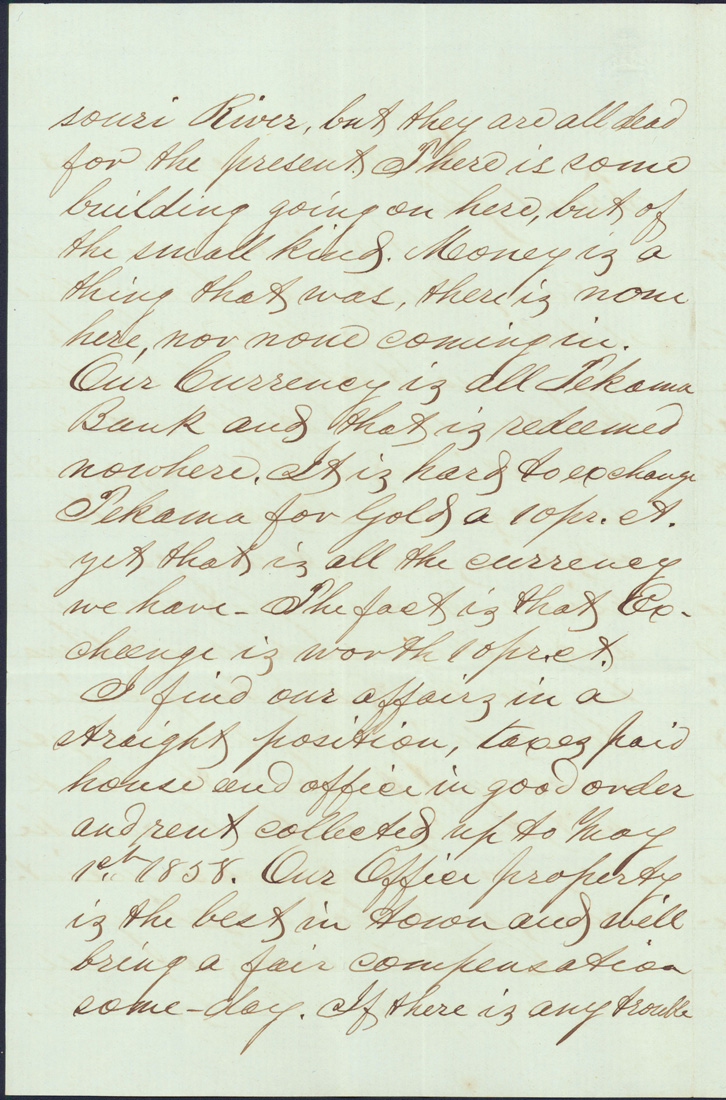 souri River, but they are all dead
for the present. There is some
building going on here, but of
the small kind. Money is a
thing that was, there is none
here, nor none coming in.
Our Currency is all Tekama
Bank and that is redeemed
nowhere. It is hard to exchange
Tekama for Gold a 10 pr. ct.
yet that is all the currency
we have - The fact is that Ex-
change is worth 10 pr. ct.
I find our affairs in a
straight position, taxes paid
house and office in good order
and rent collected up to May
1st 1858. Our Office property
is the best in town and will
bring a fair compensation
some-day. If there is any trouble